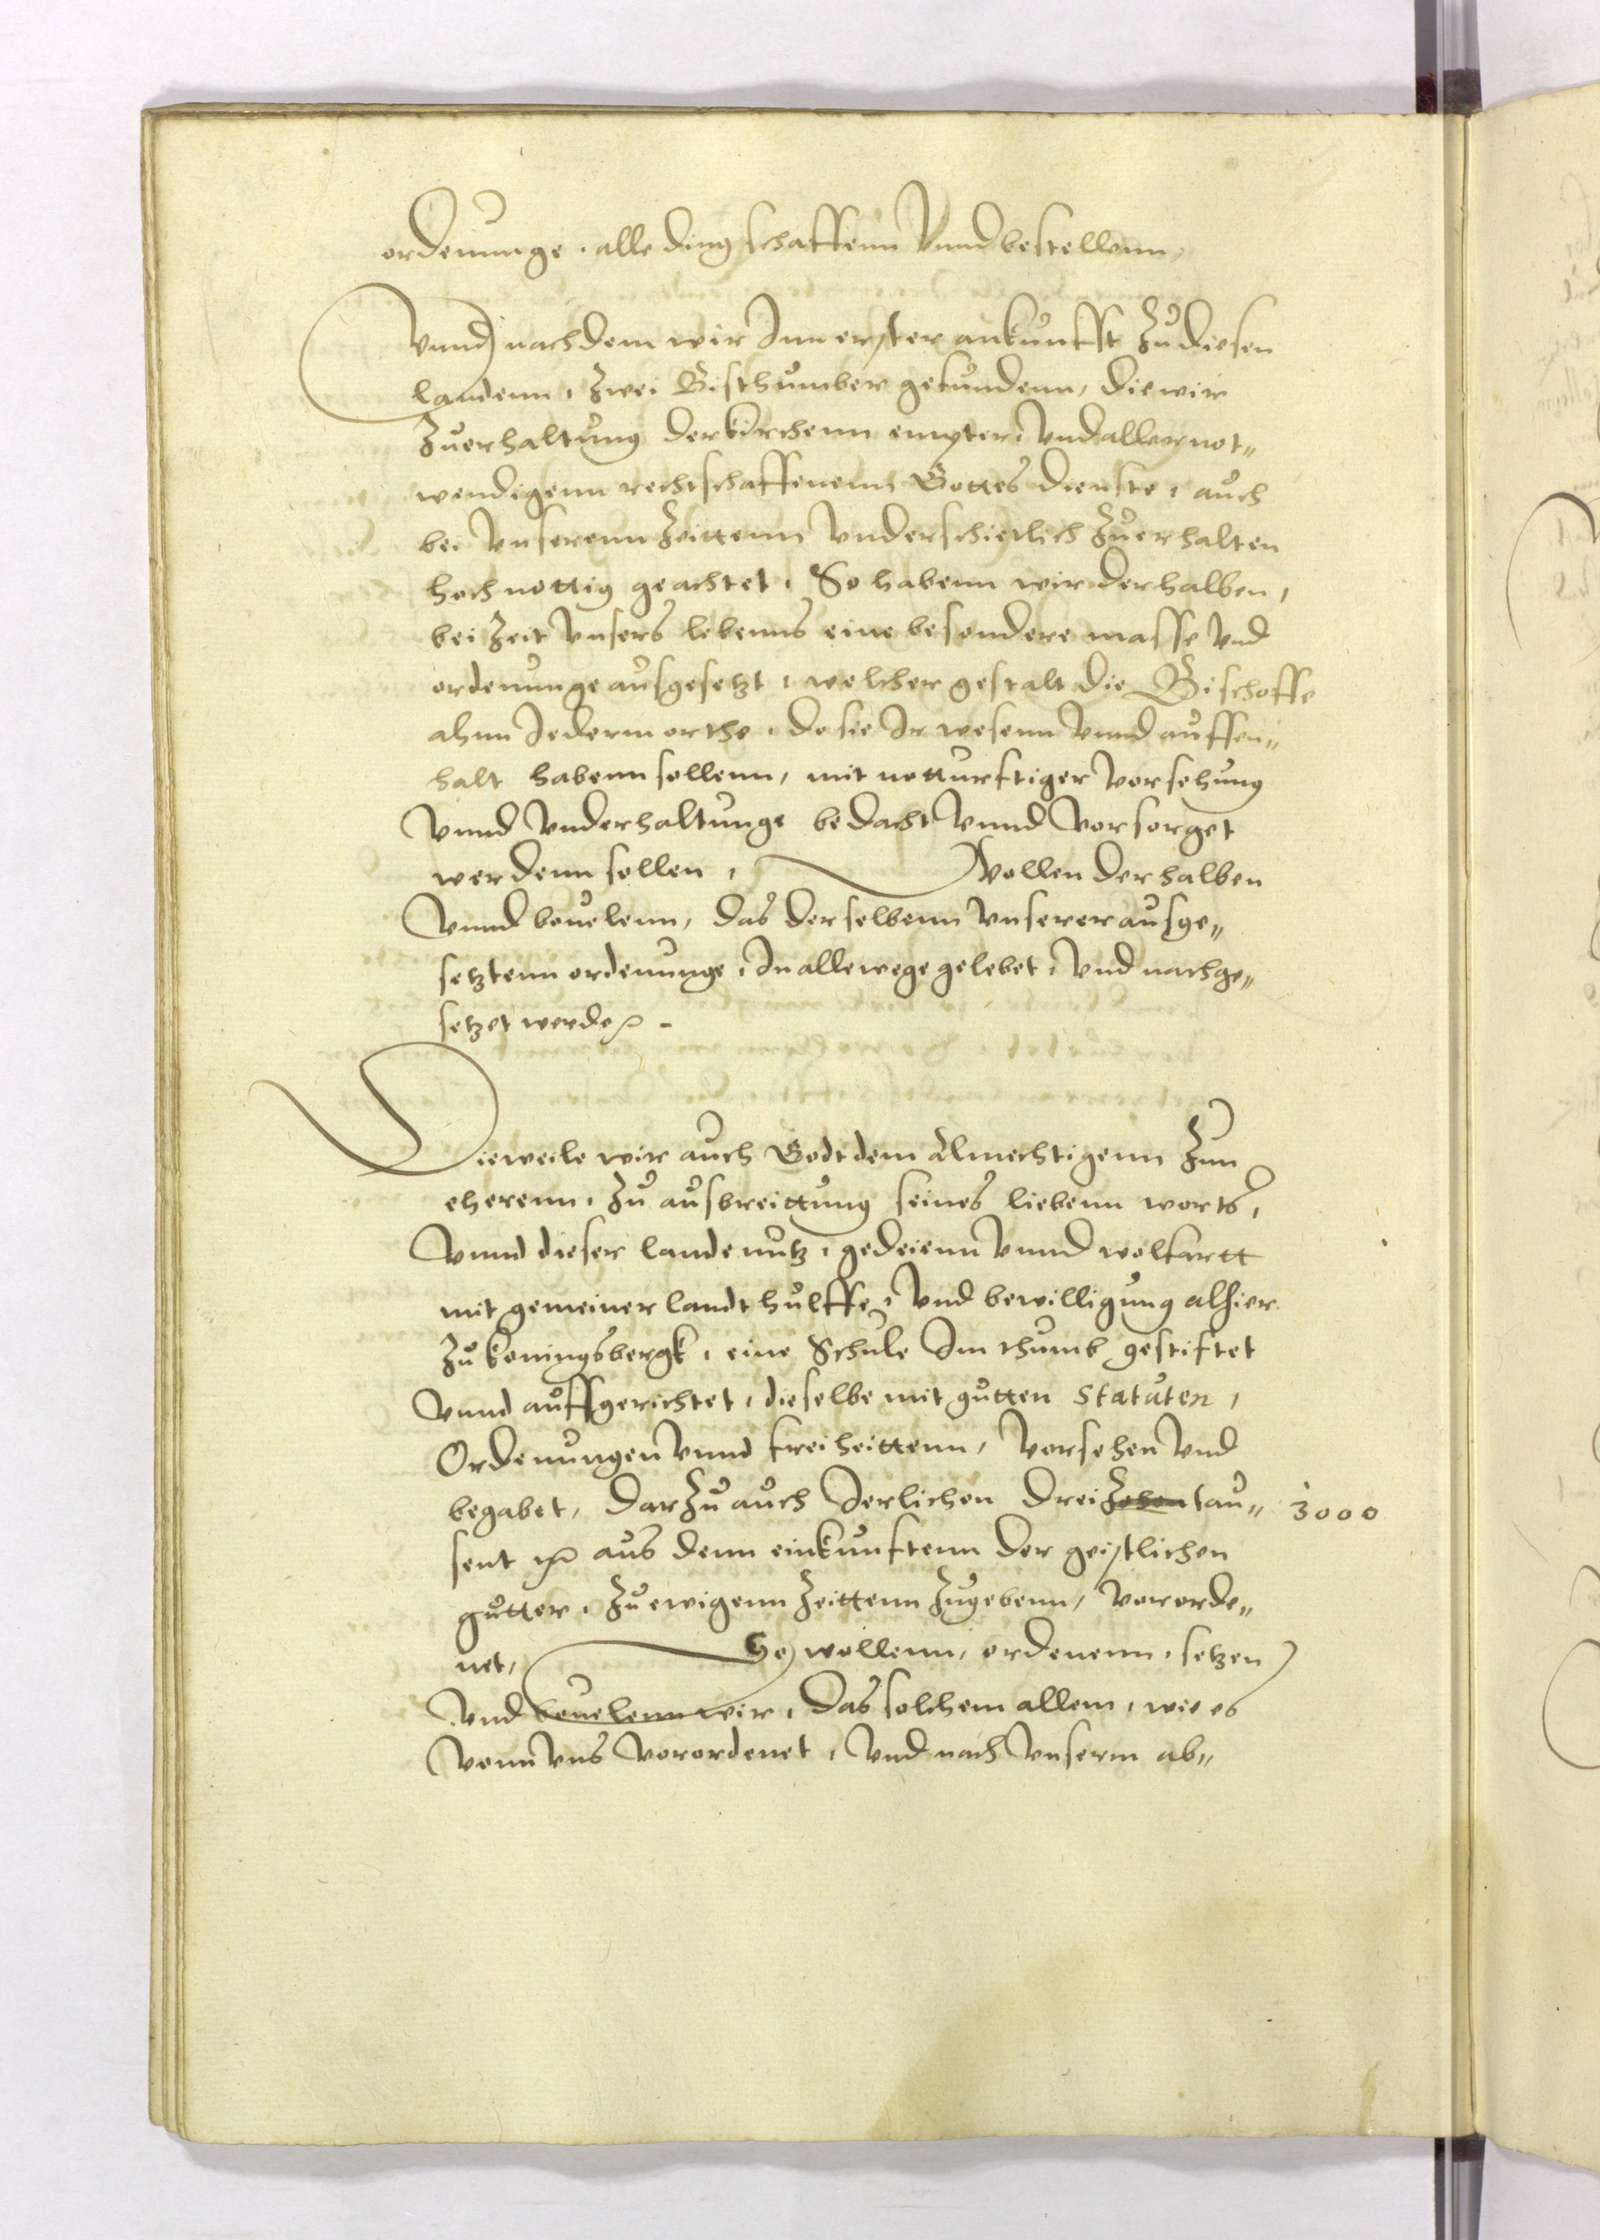 ordenunge, alle ding schaffenn Vnnd bestellenn,
Vnnd nach dem wir Inn erster ankunfft Zu diesen
landenn, Zwei Bisthumber gefundenn, die wir
Zu erhaltung der kirchenn empter, Vnd aller not„
wendigenn rechtschaffenenn Gottes dienste, auch
bei Vnserenn Zeittenn Vnderschietlich Zu erhalten
hoch nottig geachtet, So habenn wir derhalben,
bei Zeit Vnsers lebenns eine besondere masse Vnd
ordenunge ausgesetzt, welcher gestalt die Bischoffe
ahnn Jederm orthe, do sie Ir wesenn Vnnd auffen„
halt habenn sollenn, mit notturftiger Vorsehung
Vnnd Vnderhaltunge bedacht Vnnd Vorsorget
werdenn sollen, Wollen derhalben
Vnnd beuelenn, das derselbenn Vnserer ausge„
setztenn ordenunge, In allewege gelebet, Vnd nachge„
setzet werde
Dieweile wir auch Godt dem Almechtigenn Zun
eherenn, Zu ausbreittung seines liebenn worts,
Vnnd dieser lande nutz, gedeienn Vnnd wolfartt
mit gemeiner landt hulffe, Vnd bewilligung alhier
Zu koningsbergk, eine Schule Im thumb gestiftet
Vnnd auffgerichtet, dieselbe mit gutten Statuten,
Ordenungen Vnnd freiheittenn, Vorsehen Vnd
begabet, dar Zu auch Jerlichen drei Zehen tau„ 3000
sent aus denn einkunftenn der geistlichen
gutter, Zu ewigenn Zeittenn Zugebenn, Vororde„
net, So wollenn, ordenenn, setzen
Vnd beuelenn wir, das solchem allem, wie es
Vonn Vns Verordenet, Vnd nach Vnserm ab„